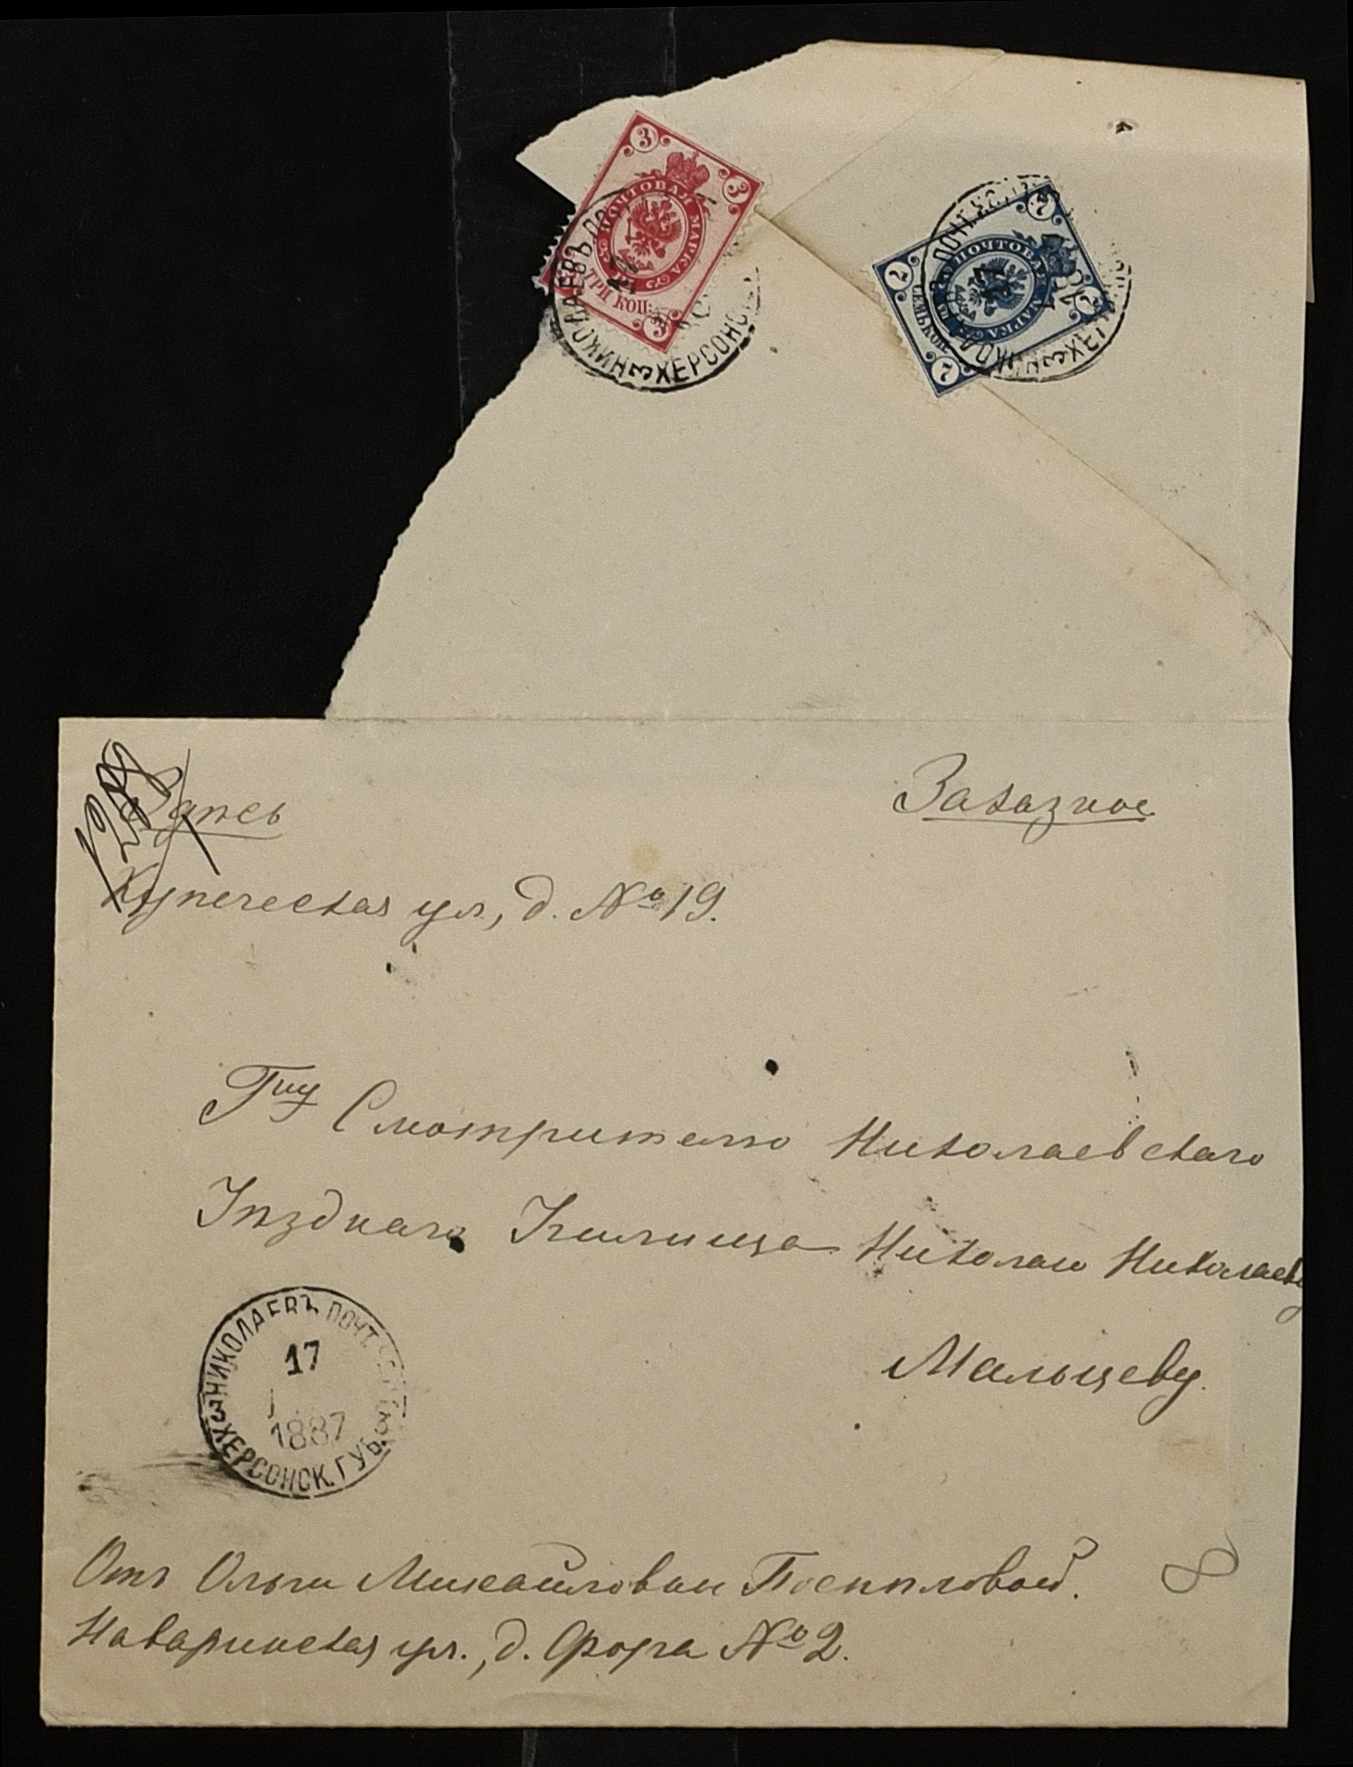 3 3 3
ПОЧТОВАЯ МАРКА
ТРИ КОП.
НИКОЛАЕВЪ ПО
ХЕРСОНС
7 7 7 7
ПОЧТОВАЯ МАРКА
СЕМЬ КОП.
Здѣсь
Заказное
Купеческая ул., д. № 19.
Гну Смотрителю Николаевскаго
Уѣзднаго Училища Николаю Николаеву
Мальцеву.
НИКОЛАЕВЪ ПОЧТ.
17
1887
ХЕРСОНСК. ГУБ.
Отъ Ольги Михайловны Поспѣловой.
8
Наваринская ул., д. Фора № 2.